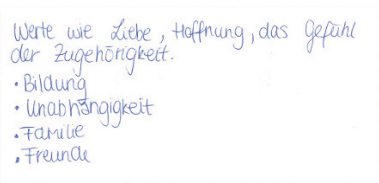 Werte wie Liebe, Hoffnung, das Gefühl
der Zugehörigkeit.
• Bildung
• Unabhängigkeit
• Familie
• Freunde